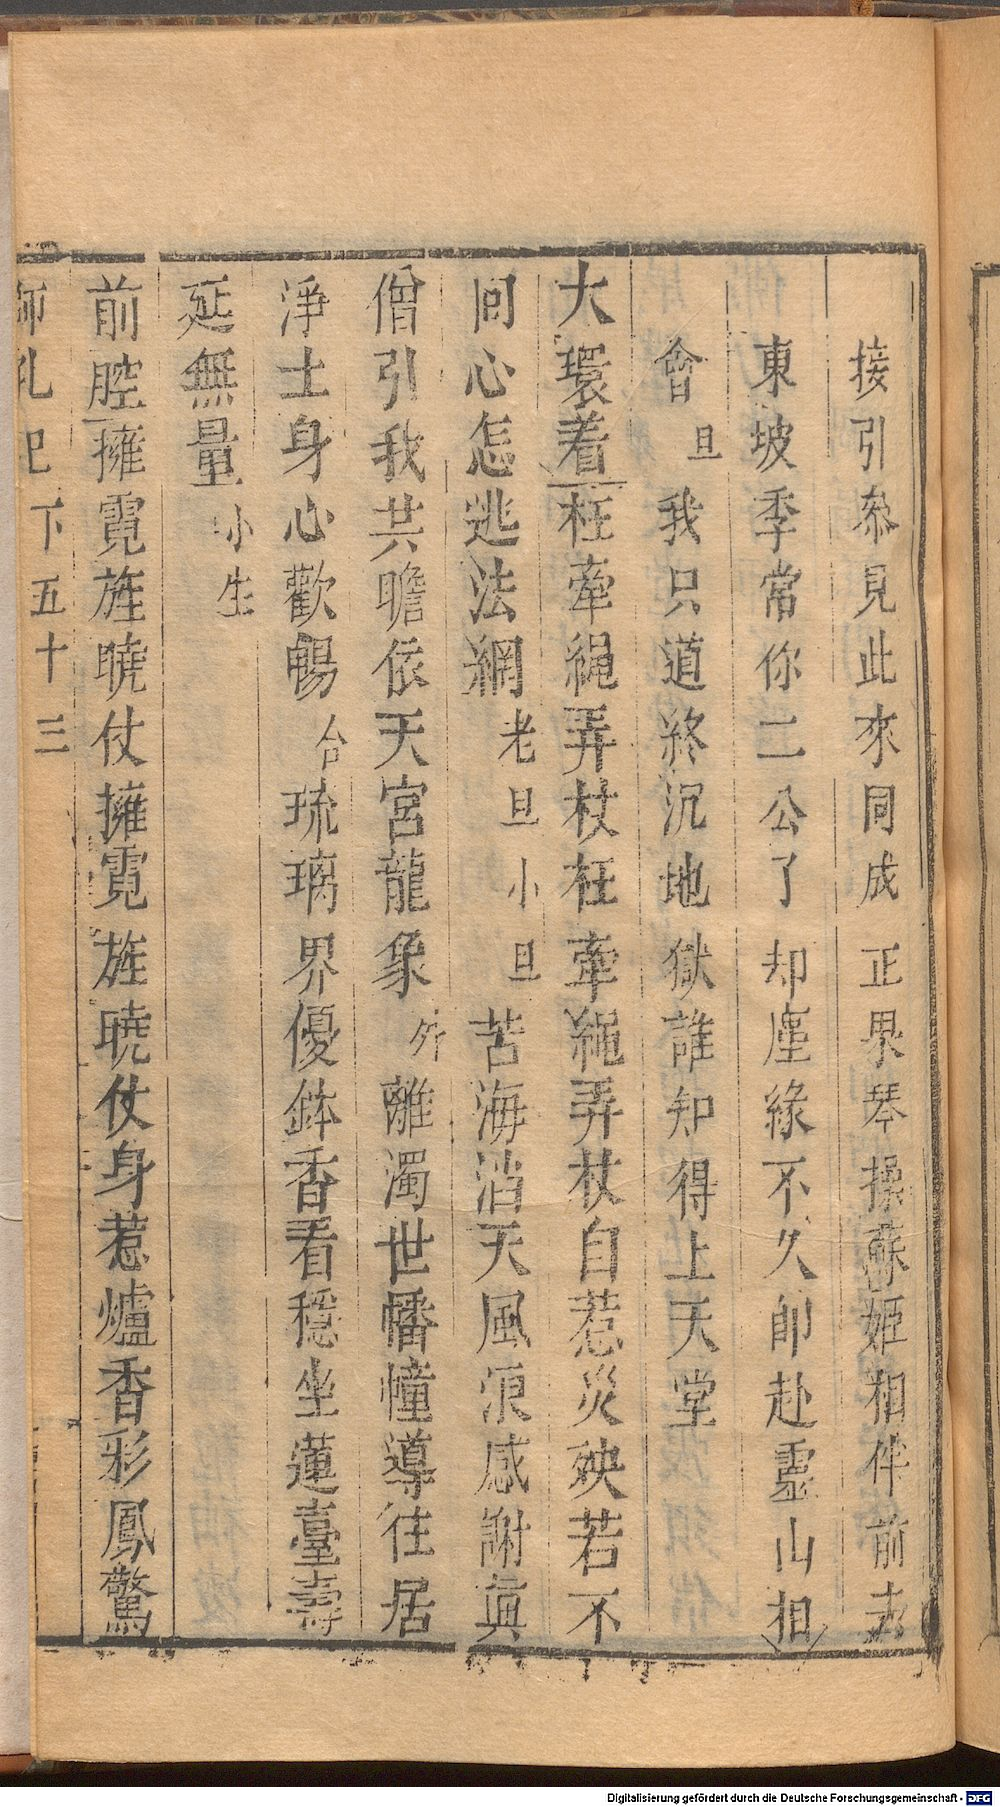 接引叅見此來同成正果琴操蘇姬相伴前去
東坡季常你二公了却塵緣不久卽赴靈山相
會旦我只道終沉地獄誰知得上天堂
大環着枉牽繩弄杖枉牽繩弄杖自惹災殃若不
同心怎逃法網老旦小旦苦海滔天風浪感謝眞
僧引我共瞻依天宮龍象外離濁世幡幢導往居
淨土身心歡暢台琉璃界優鉢香看穩坐蓮臺壽
延無量小生
前腔擁霓旌曉仗擁霓旌曉仗身惹爐香彩鳳驚
師孔巳下五十三
Digitalisierung gefördert durch die Deutsche Forschungsgemeinschaft - DFG